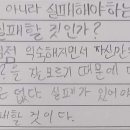 아니라 실패해야하는
실패할 것인가?
점 익숙해지면서 자신만의
을 잘 모르기 때문에
없다. 실패가 있어야
할 것이다.